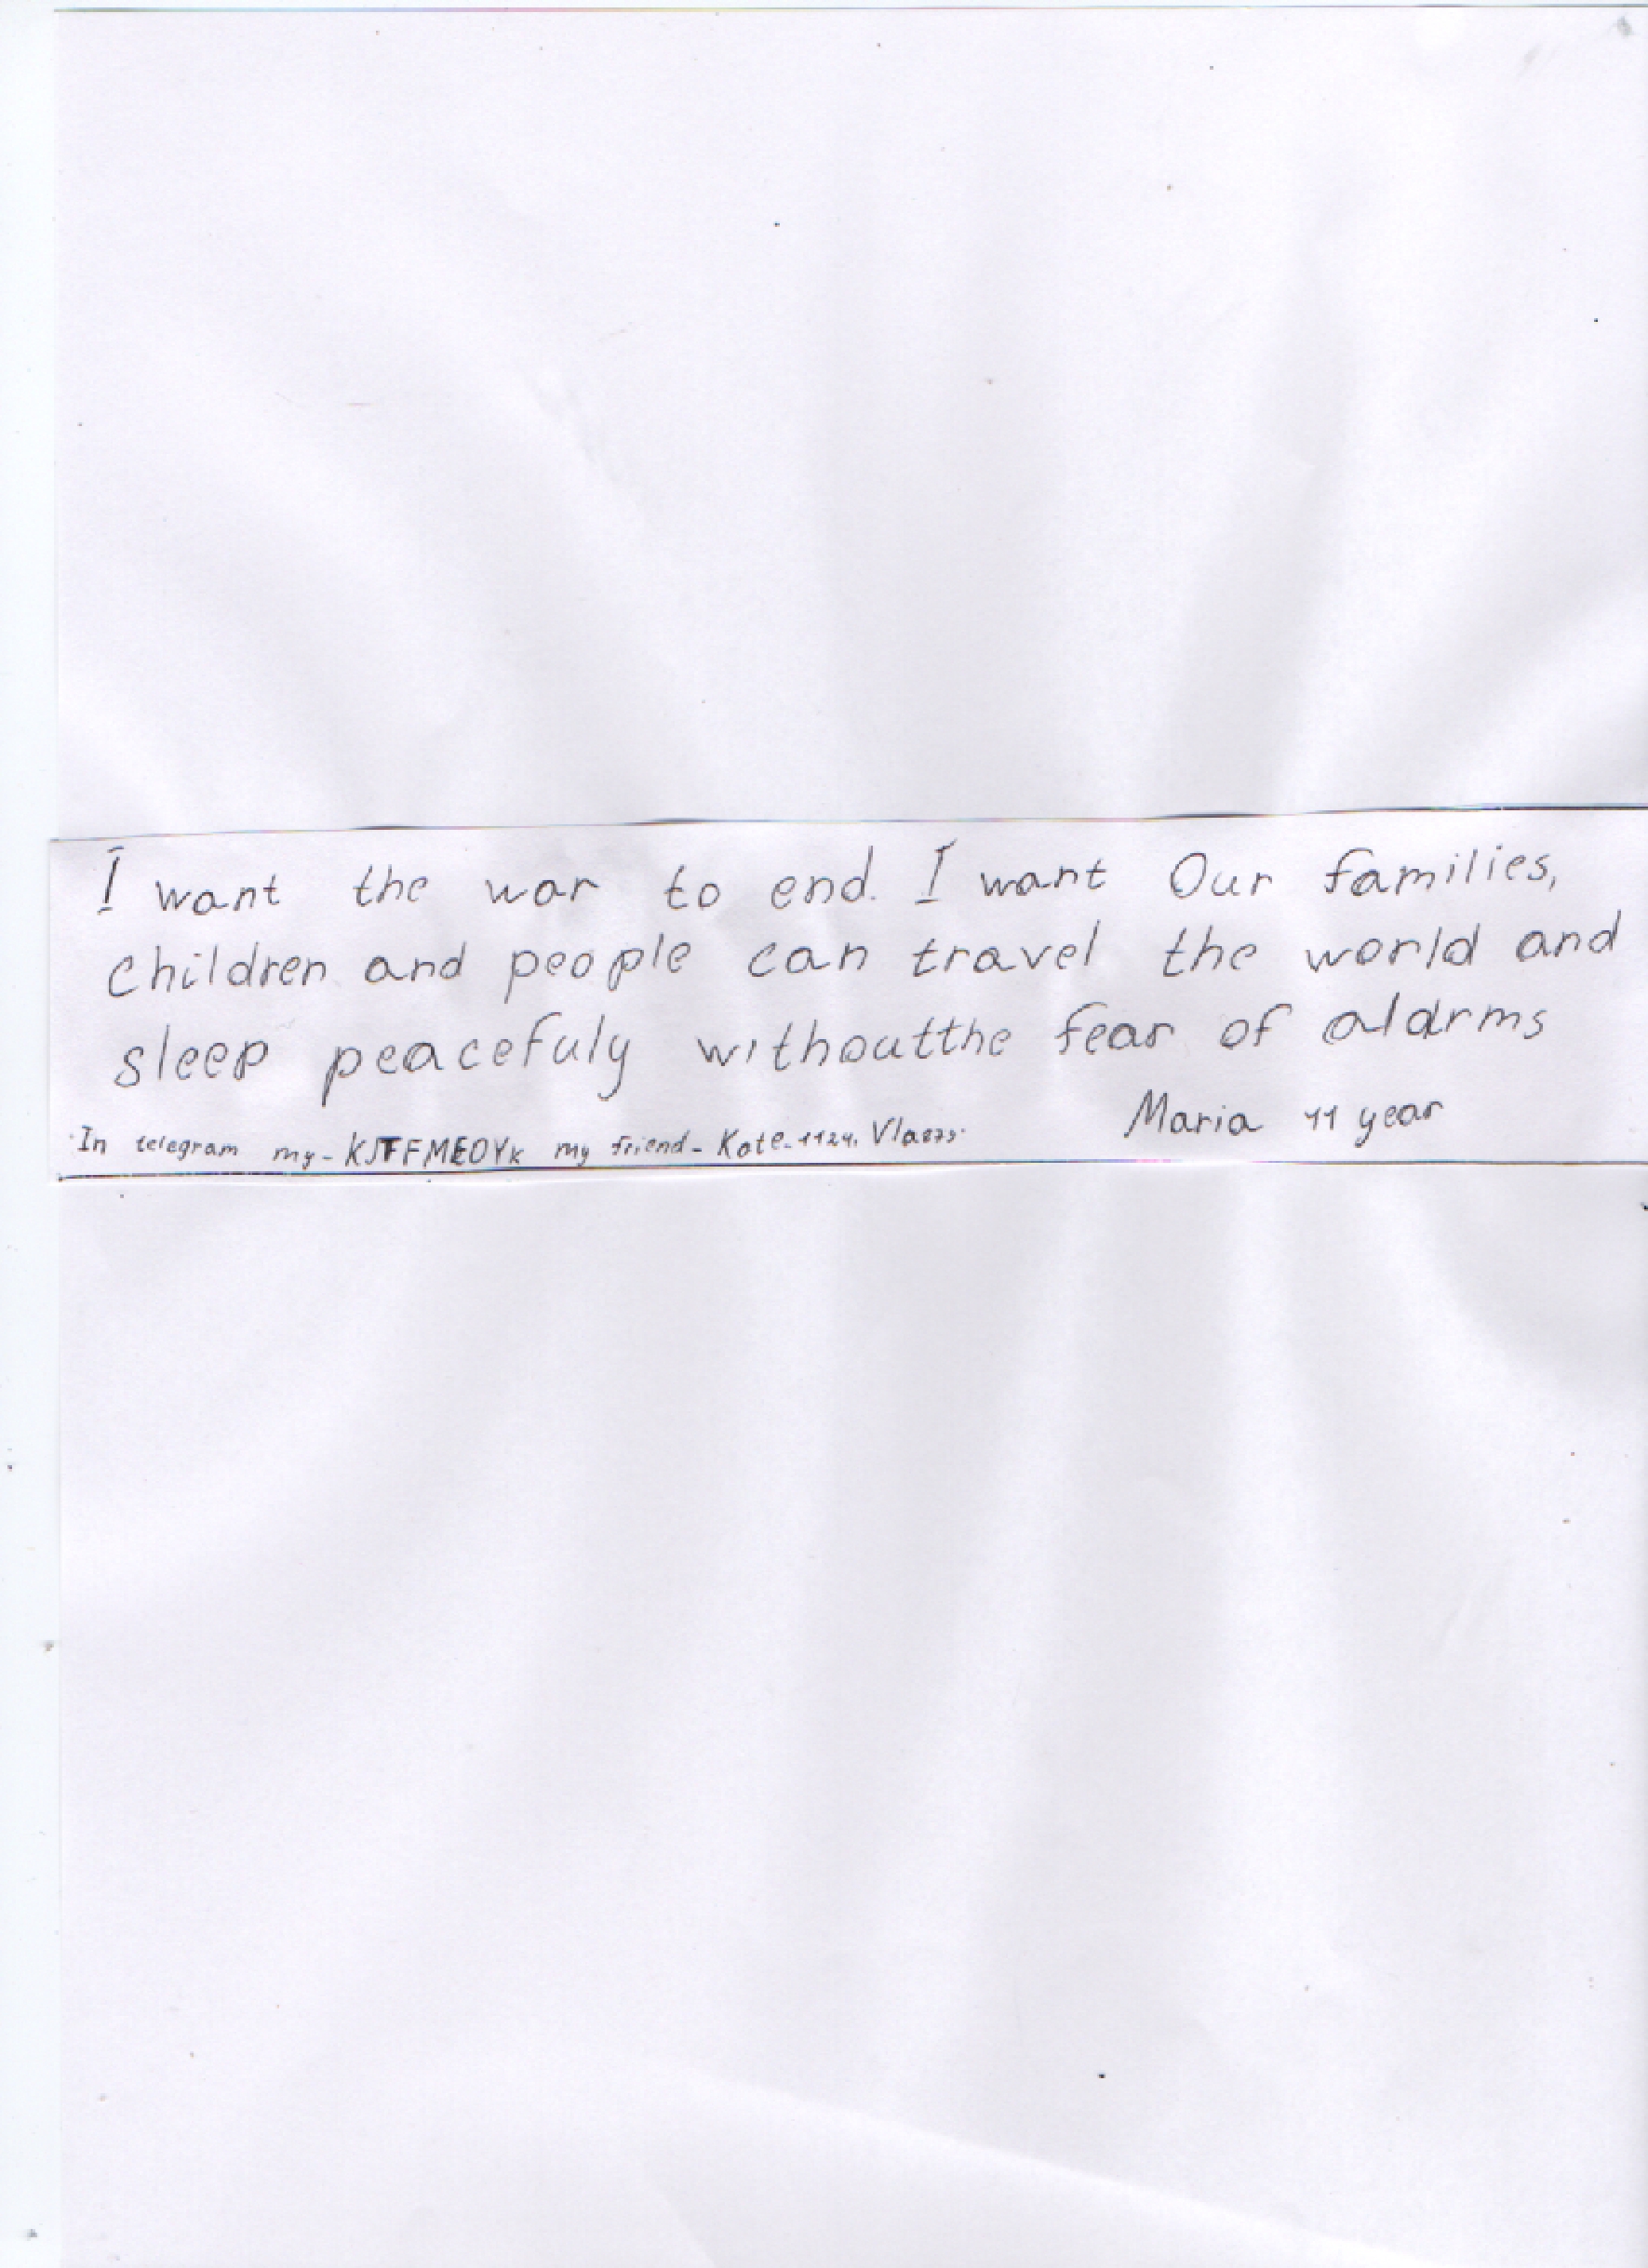 I want the war to end. I want Our families,
children and people can travel the world and
sleep peacefuly withoutthe fear of alarms
Maria 11 year
In telegram my - my friend - Kate-1124,